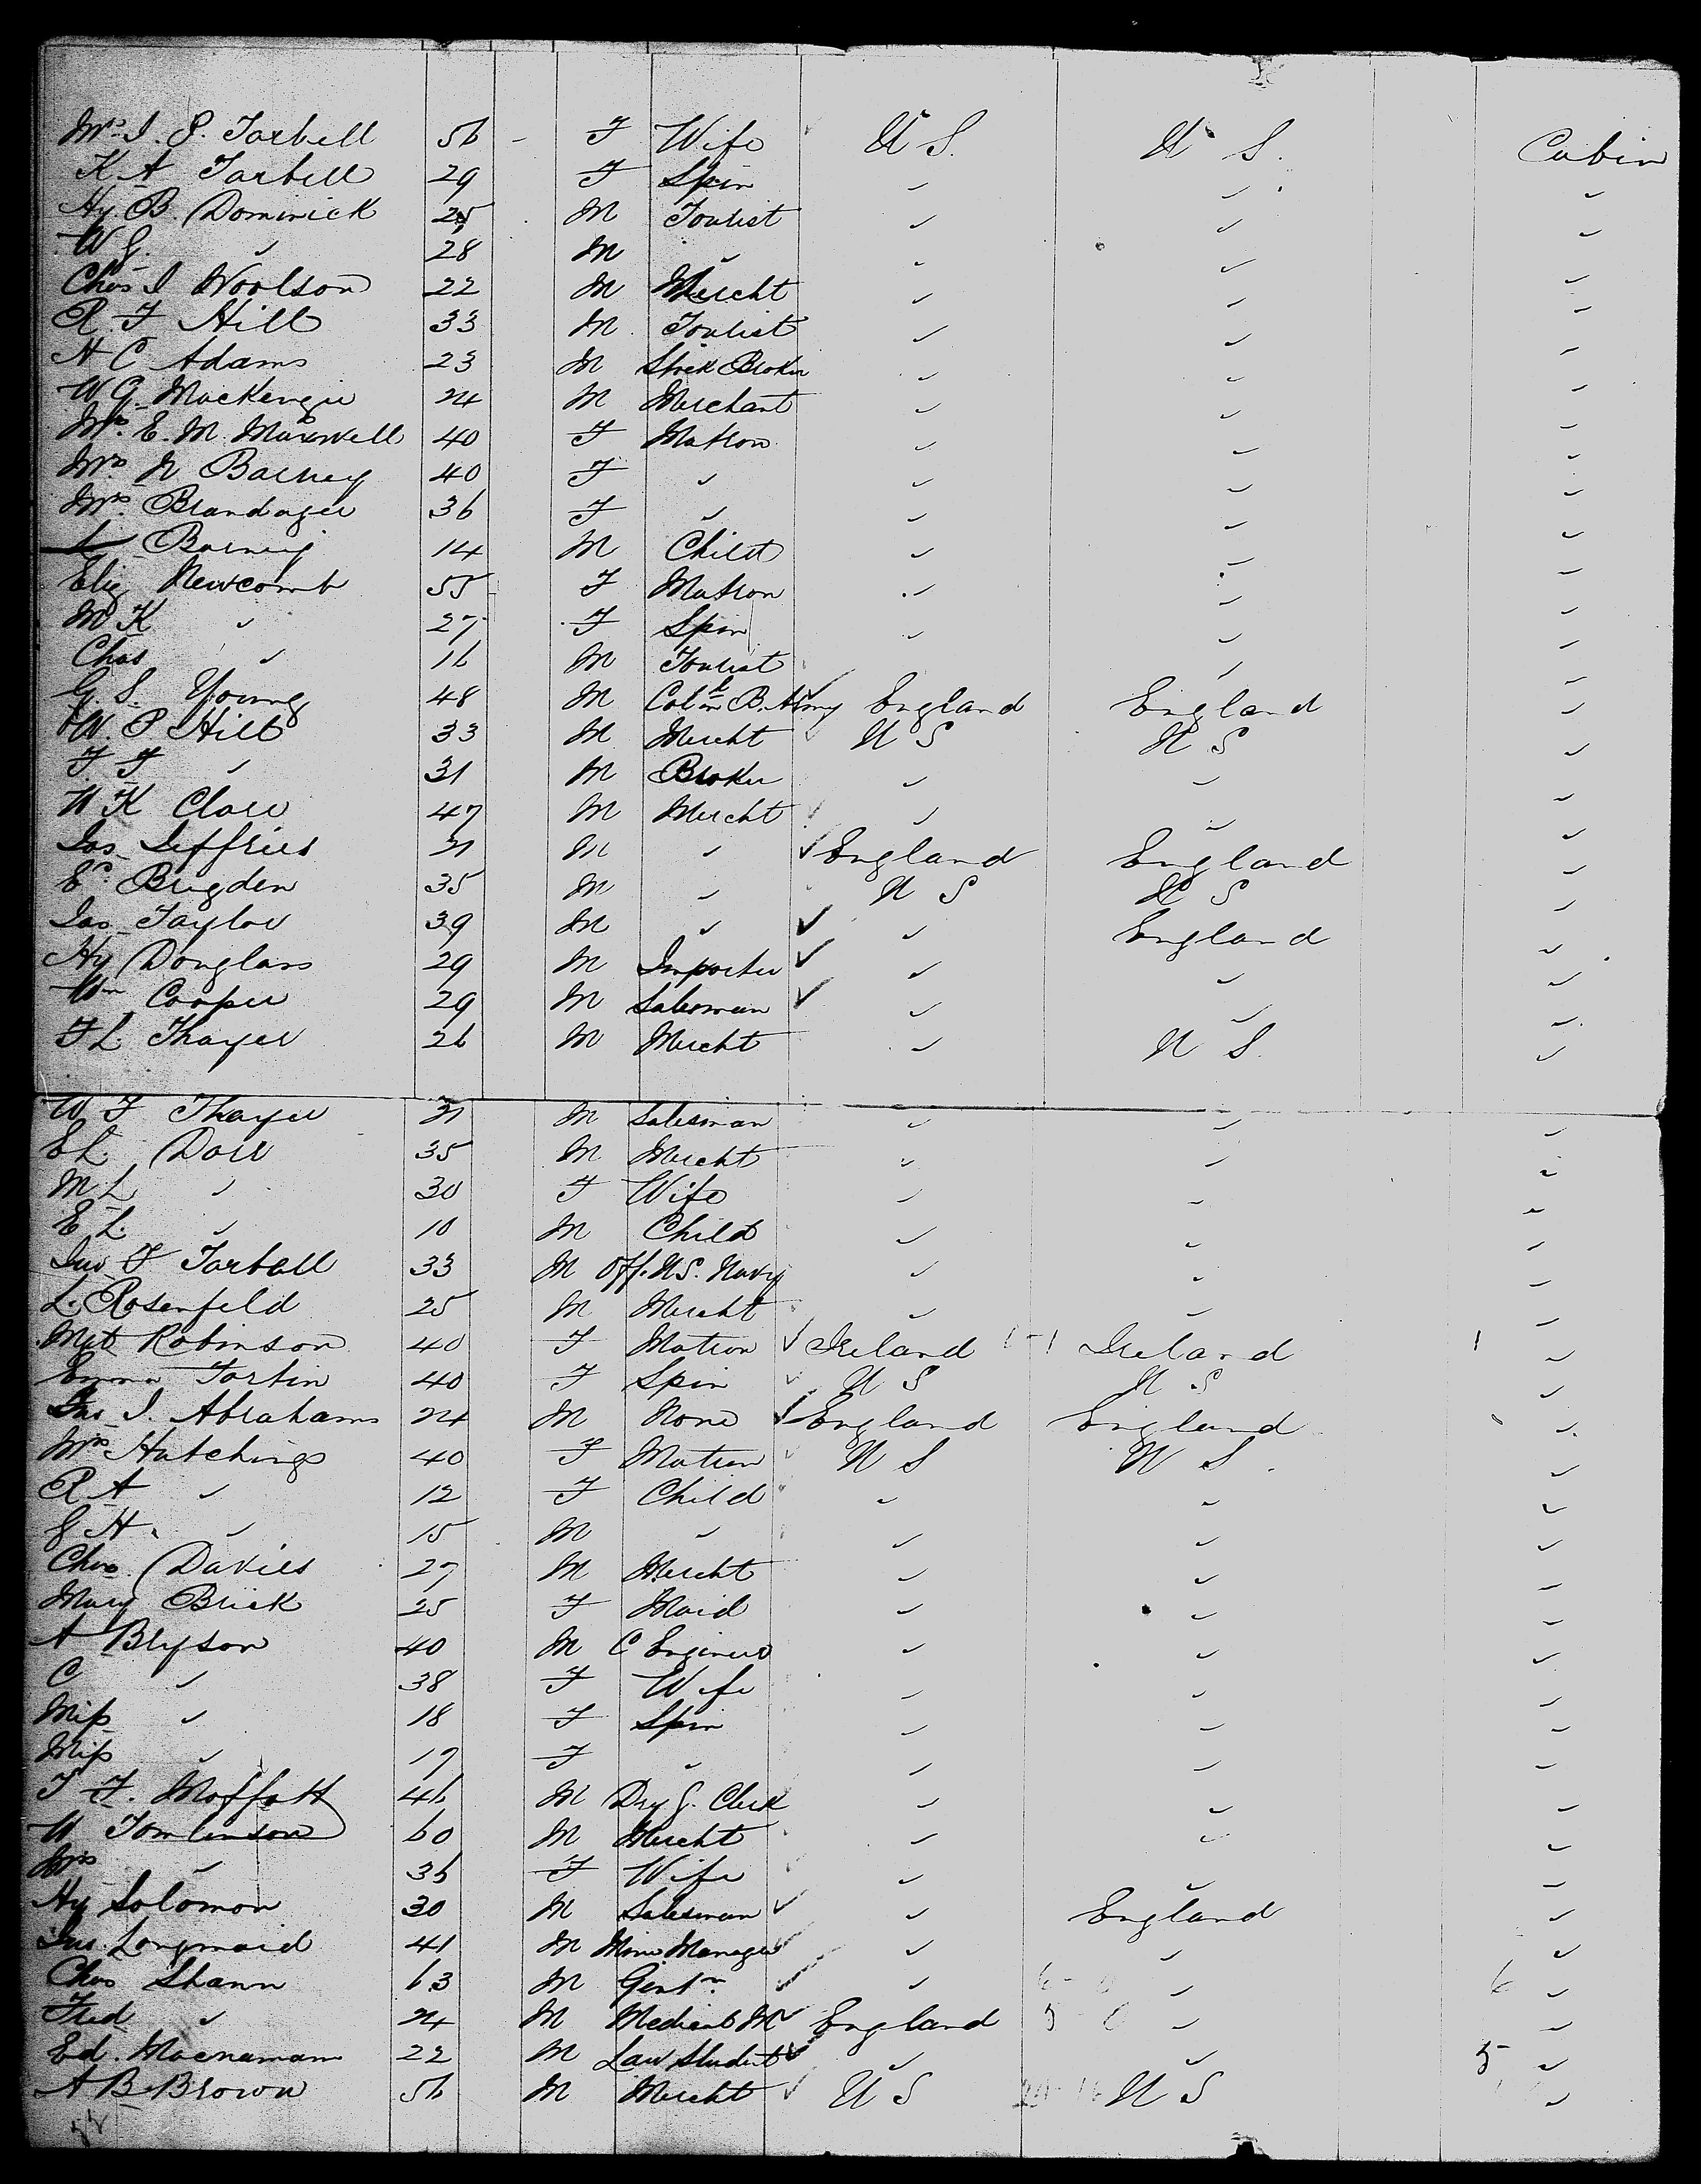 Mrs. I. S. Tarbell 56 - F Wife U S. U S. Cabin
K A Tarbell 29 F Spin " " "
Hy B. Dominick 25 M Tourist " " "
W G. " 28 M " " " "
Chas I Woolson 22 M Mercht " " "
R. F Hill 33 M Tourist " " "
H C Adams 23 M Stock Broker " " "
W G. Mackenzie 24 M Merchant " " "
Mrs. E. M. Maxwell 40 F Matron " " "
Mrs. N Barney 40 F " " " "
Mrs. Brandager 36 F " " " "
Barney 14 M Child " " "
Eliz Newcomb 55 F Matron " " "
M K " 27 F Spin " " "
Chas " 16 M Tourist " " "
G. S. Young 48 M Col in B. Army England England "
W. P Hill 33 M Mercht U S U S "
F. F " 31 M Broker " " "
W K Clare 47 M Mercht " " "
Jas Jeffries 31 M " England England "
Ed. Brigden 35 M " U S U S "
Jas Taylor 39 M " " England "
Hy Douglass 29 M Importer " " "
Wm Cooper 29 M Salesman " " "
F L. Thayer 26 M Mercht " U S. "
W F Thayer 31 M Salesman " " "
E L. Dorr 35 M Mercht " " "
M L " 30 F Wife " " "
E L. " 10 M Child " " "
Jno F Tarball 33 M Off. U.S. Navy " " "
L. Rosenfeld 25 M Mercht " " "
Mgt Robinson 40 F Matron Ireland 1-1 Ireland 1 "
Emma Torbin 40 F Spin U S U S "
Jas I. Abrahams 24 M None England England "
Mrs. Hutchings 40 F Matron U S U S. "
R A " 12 F Child " " "
G H. " 15 M " " " "
Chas. Davies 27 M Mercht " " "
Mary Brick 25 F Maid " " "
A Blyson 40 M C Engineer " " "
C " 38 F Wife " " "
Miss " 18 F Spin " " "
Miss " 17 F " " " "
T. F. Moffatt 46 M Dry G. Clerk " " "
W Tomlinson 60 M Mercht " " "
Mrs " 36 F Wife " " "
Hy Solomon 30 M Salesman " England "
Jas. Longmaid 41 M Mine Manager " " "
Chas Shann 63 M Gentn. " " 6 "
Fred " 24 M Medical M England " "
Ed. Macnamara 22 M Law Student " " 5 "
A B Brown 56 M Mercht U S U S "